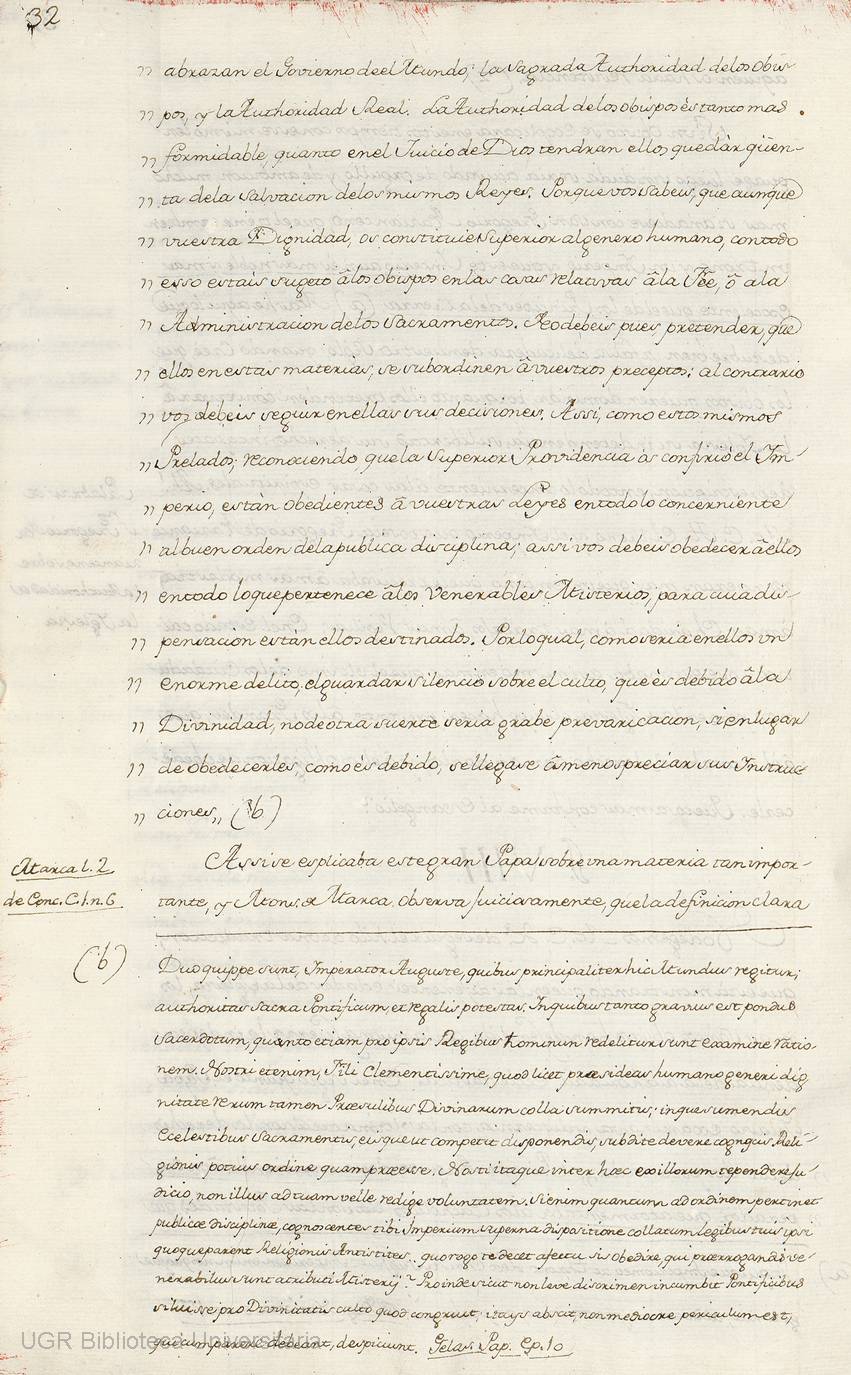 32
,, abrazan el Govierno de el Mundo; la sagrada Authoridad de los Obis-
,, pos, y la Authoridad Real. La Authoridad de los obispos ès tanto mas
,, formidable, quanto en el Juicio de Dios tendran ellos que dàr qüen-
,, ta de la salvacion de los mismos Reyes. Porque vos sabeis, que aunque
,, vuestra Dignidad, os constituie superior al genero humano, con todo
,, esso estais sugeto â los obispos en las cosas relativas â la Fêe, ô a la
,, Administracion de los sacramentos. No debeis pues pretender, que
,, ellos en estas materias, se subordinen â vuestros preceptos: al contrario
,, vos debeis seguir en ellas sus decisiones. Assi, como estos mismos
,, Prelados; reconociendo, que la superior Providencia os confiriò el Im-
,, perio, estàn obedientes â vuestras Leyes en todo lo concerniente
,, al buen orden de la publica disciplina; assi vos debeis obedecer â ellos
,, en todo lo que pertenece â los Venerables Misterios, para cuia dis-
,, pensacion estàn ellos destinados. Por lo qual, como seria en ellos un
,, enorme delito, el guardar silencio sobre el culto, que ès debido â la
,, Divinidad, no de otra suerte seria grabe prevaricacion, si en lugar
,, de obedecerles, como ès debido, se llegase â menospreciar sus Instruc-
,, ciones,, (b)
Assi se esplicaba este gran Papa sobre una materia tan impor-
Marca l. 2.
de Conc. C. 1. n. 6
tante, y Mons. de Marca observa juiciosamente, que la definicion clara
(b)
Duo quippe sunt, Imperator Auguste, quibus principaliter hic Mundus regitur;
authoritas sacra Pontificum, et regalis potestas. In quibus tanto gravius est pondus
sacerdotum, quanto etiam pro ipsis Regibus hominun reddituri sunt examine ratio-
nem. Nosti etenim, Fili Clementissime, quod licet præsideas humano generi dig
nitate rerum tamen Præsulibus Divinarum colla summitis; inque sumendis
Ecelestibus sacramentis, eisque ut competit disponendis, subdite devere cognoscis Reli-
gionis potius ordine quam præesse. Nosti itaque inter hæc ex illorum te pendere ju-
dicio, non illus ad tuam velle redige voluntatem. si enim quantum ad ordinem pertinet
publicæ disciplinæ, cognoscentes tibi Imperium superna dispositione collatum legibus tuis ipsi
quoque parent Religionis Antistites.. quo rogo te decet afectu sis obedire, qui prærrogandis ve-
nerabilus sunt atributi Misterij? Proinde sicut non leve discrimen incumbit Pontificibus
siluisse pro Divinitatis culto quod congruit; ita ys absit, non mediocre periculum est,
qui cum parere debeant, despiciunt. Gelas. Pap. Ep. 10
UGR Biblioteca Universitaria